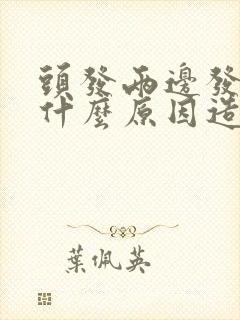 頭發兩邊發
什麼原因造
葉佩英